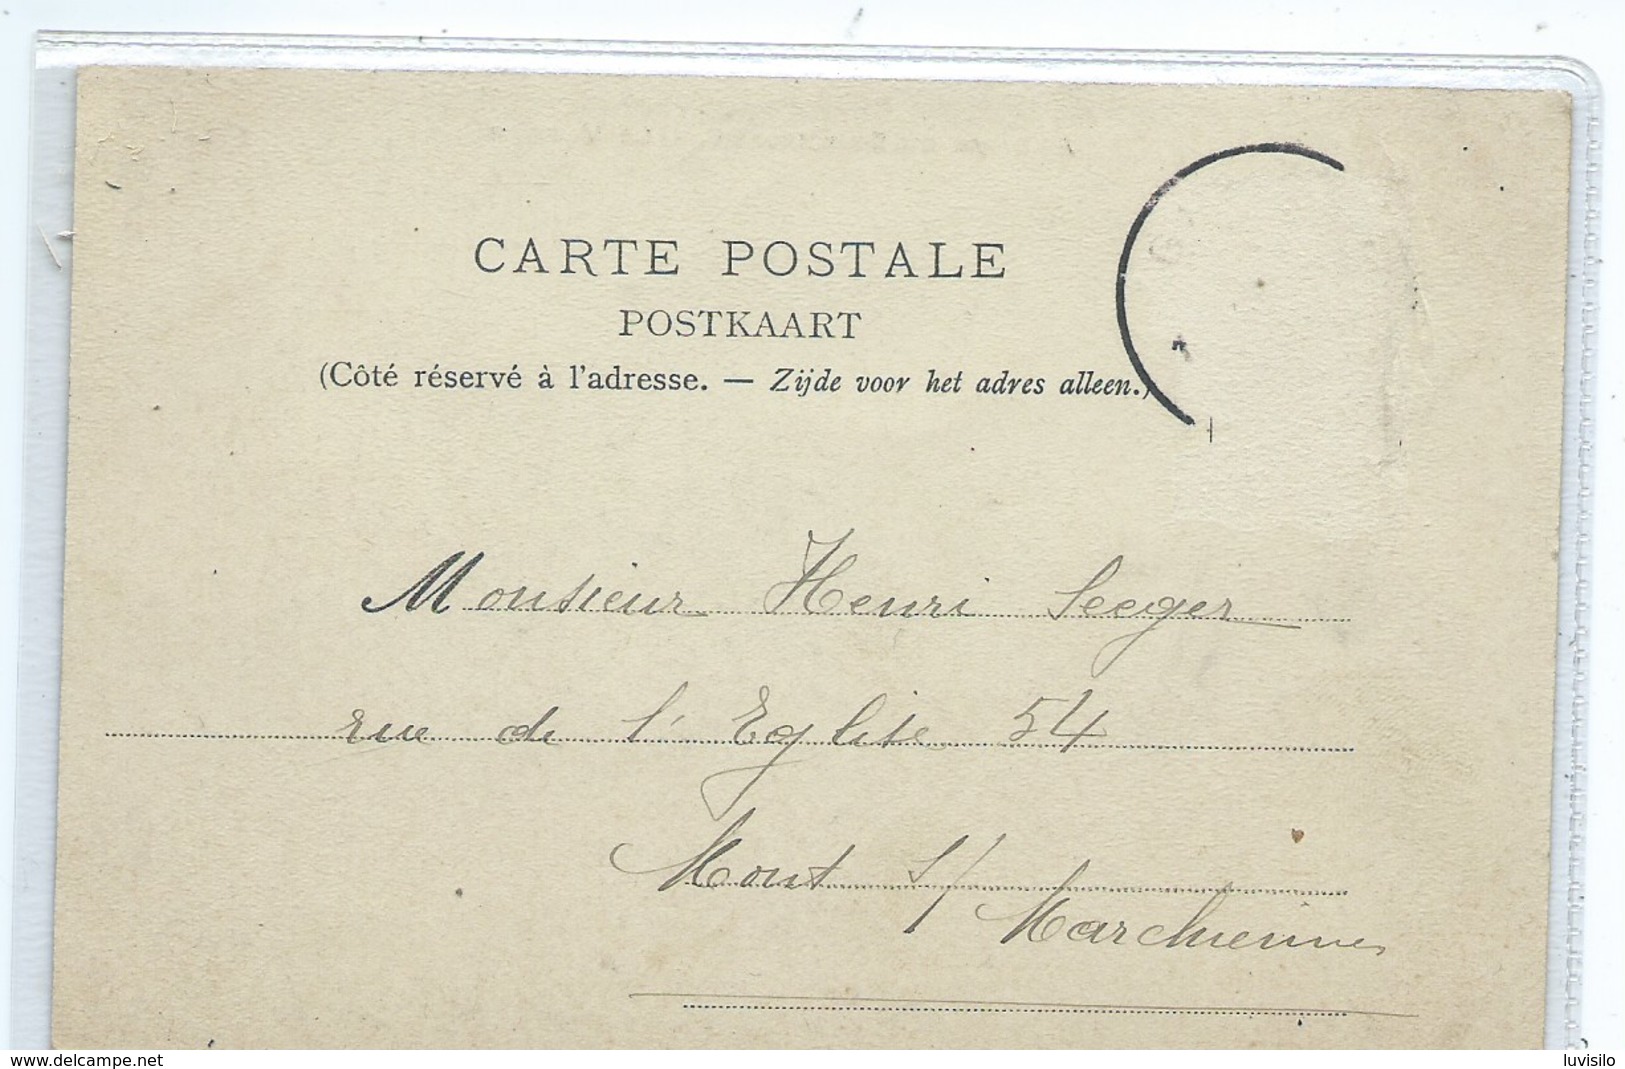 CARTE POSTALE
POSTKAART
(Côté réservé à l'adresse. — Zijde voor het adres alleen.)
Monsieur Henri Seeger
rue de l'Eglise 54
Mont s/
Marchiennes
www.delcampe.net
luvisilo